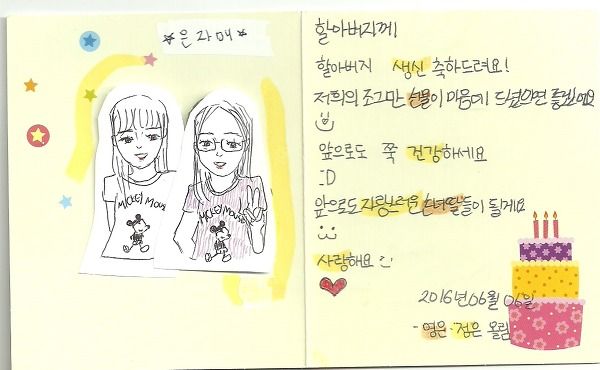 ★은자매★
MICKEY MOUSE
MICKEY MOUSE
할아버지께!
할아버지 생신 축하드려요!
저희의 조그만 선물이 마음에 드셨으면 좋겠어요
앞으로도 쭉 건강하세요
:D
앞으로도 자랑스러운 손녀딸들이 될게요
사랑해요
2016년 06월 06일
-영은·정은 올림